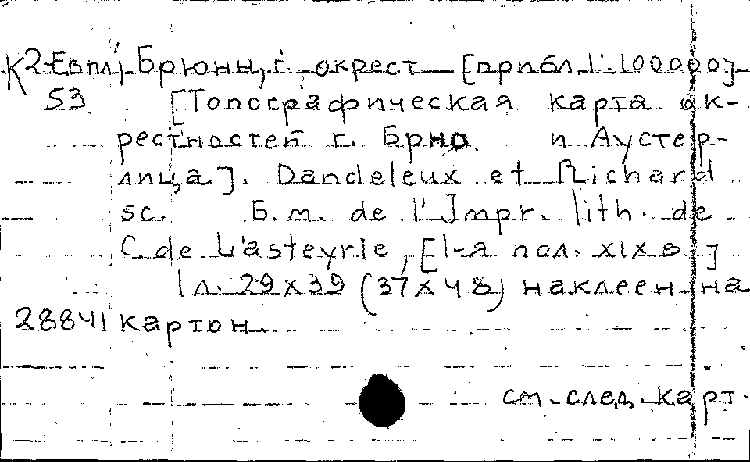 К 2-Евпл, Брюнн, г. окрест [прибл. 1:100000]
53 [Топографическая карта ок-
рестностей г. Брно и Аустер-
лица]. Dandeleux et Richard
sc. Б.м. de l'Impr. lith. de
C. de L'asteyrie, [1-я пол. XIX в.]
1 л. 29х39 (37х48) наклеен на
28841 картон.
см. след. карт.